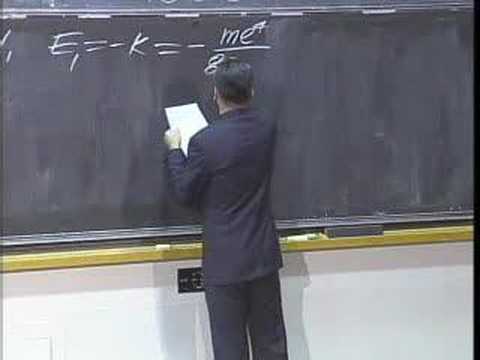 E₁ = -K = - me⁴/8